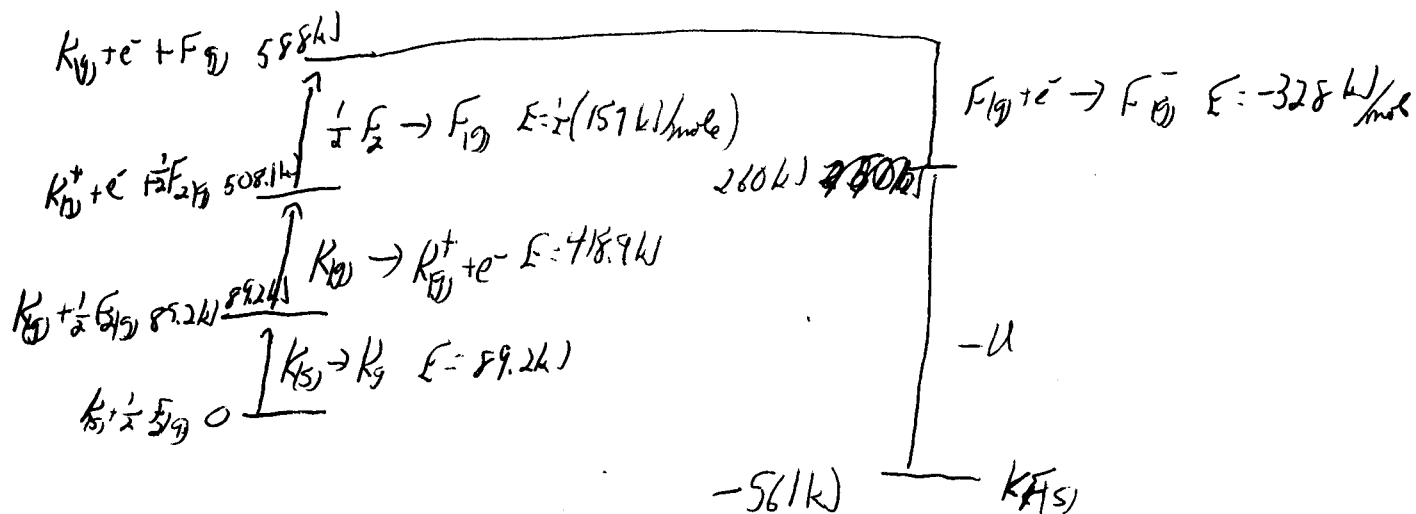 K(g) + e⁻ + F(g) 588kJ
F(g) + e⁻ → F⁻(g) E = -328 kJ/mole
½ F₂ → F(g) E = ½(159 kJ/mole)
K⁺(g) + e⁻ + ½F₂(g) 508.1kJ
260kJ
K(g) → K⁺(g) + e⁻ E = 418.9kJ
K(g) + ½ F₂(g) 89.2kJ 89.2kJ
-U
K(s) → Kg E = 89.2kJ
K(s) + ½ F₂(g) 0
-561kJ KF(s)